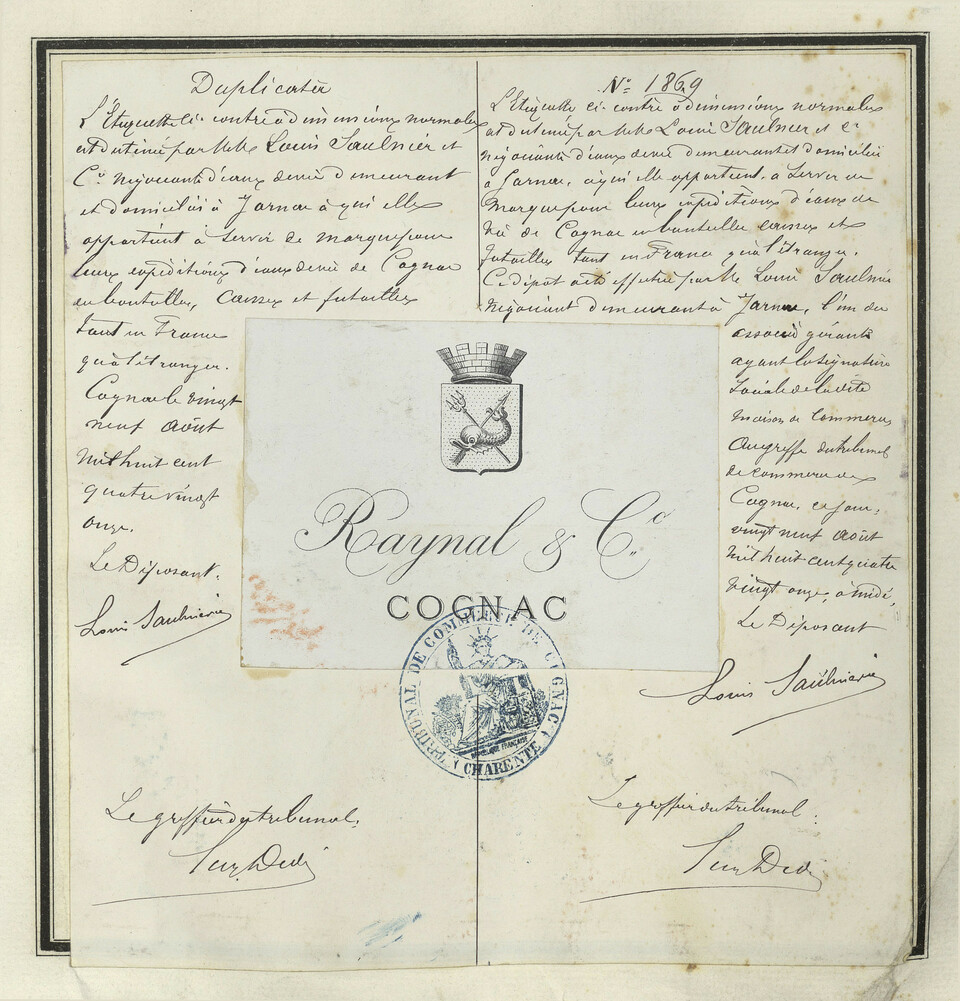 Duplicata
L'Etiquette ci-contre à dimensions normales
est destinée par MM. Louis Saulnier et
Cie Négociants d'eaux de vie demeurant
et domiciliés à Jarnac à qui elle
appartient à servir de marque pour
leurs expéditions d'eaux de vie de Cognac
en bouteilles, caisses et futailles
tant en France
qu'à l'étranger.
Cognac le vingt
neuf août
mil huit cent
quatre vingt
onze.
Le Déposant.
Louis Saulnier
Le greffier du tribunal.
No 1869
L'Etiquette ci-contre à dimensions normales
est destinée par MM. Louis Saulnier et Cie
négociants d'eaux de vie demeurant et domiciliés
à Jarnac, à qui elle appartient, à servir de
marque pour leurs expéditions d'eaux de
vie de Cognac en bouteilles caisses et
futailles tant en France qu'à l'étranger.
Ce dépôt a été effectué par M. Louis Saulnier
Négociant demeurant à Jarnac, l'un des
associés gérants
ayant la signature
sociale de la dite
maison de commerce
au greffe du tribunal
de commerce de
Cognac, ce jour,
vingt neuf août
mil huit cent quatre
vingt onze, à midi.
Le Déposant
Louis Saulnier
Le greffier du tribunal.
Raynal & Cie
COGNAC
TRIBUNAL DE COMMERCE DE COGNAC
REPUBLIQUE FRANÇAISE
CHARENTE